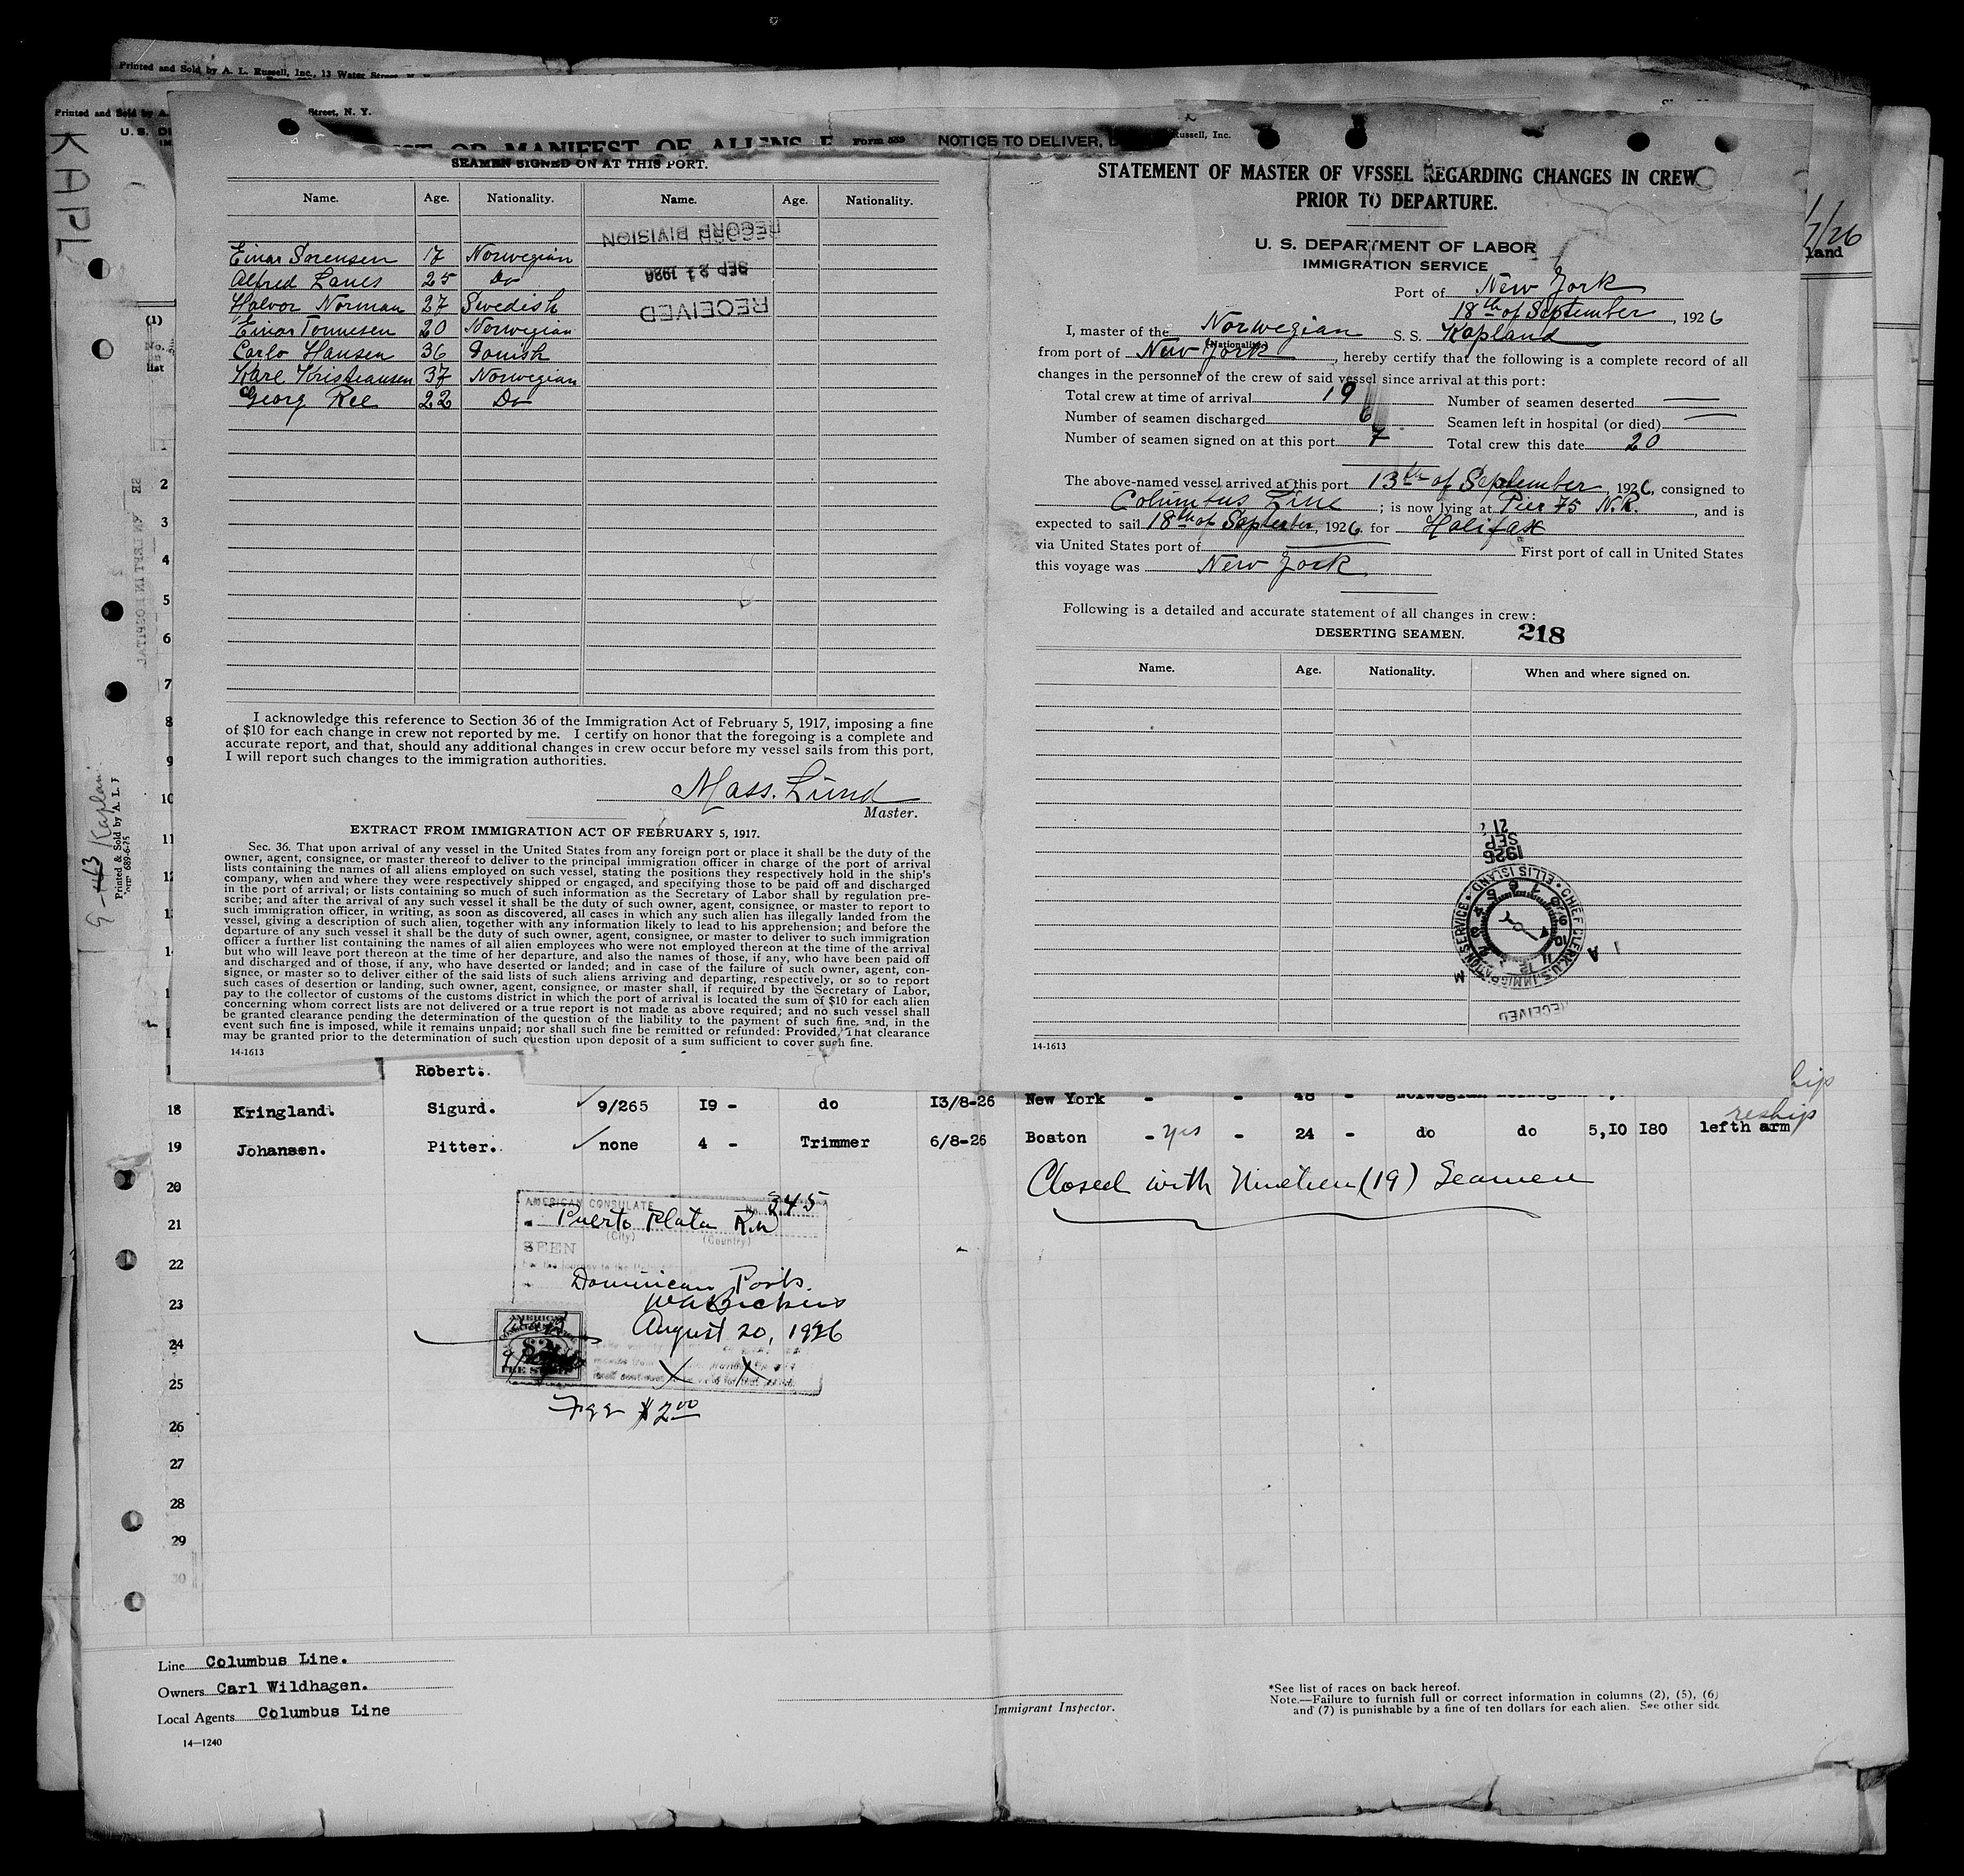 Printed and Sold by A. L. Russell, Inc., 13 Water Street, N. Y.
Printed and Sold by A.
Street, N. Y.
U. S. DE
KAPL
MANIFEST OF ALIENS
Form 559
NOTICE TO DELIVER,
Russell, Inc.
SEAMEN SIGNED ON AT THIS PORT.
Name. Age. Nationality. Name. Age. Nationality.
Einar Sorensen 17 Norwegian
Alfred Lanes 25 Do
Halvor Norman 27 Swedish
Einar Tonnesen 20 Norwegian
Carlo Hansen 36 Danish
Kare Kristiansen 37 Norwegian
Georg Ree 22 Do
RECORD DIVISION
SEP 21 1926
RECEIVED
I acknowledge this reference to Section 36 of the Immigration Act of February 5, 1917, imposing a fine
of $10 for each change in crew not reported by me. I certify on honor that the foregoing is a complete and
accurate report, and that, should any additional changes in crew occur before my vessel sails from this port,
I will report such changes to the immigration authorities.
Mass. Lund
Master.
EXTRACT FROM IMMIGRATION ACT OF FEBRUARY 5, 1917.
Sec. 36. That upon arrival of any vessel in the United States from any foreign port or place it shall be the duty of the
owner, agent, consignee, or master thereof to deliver to the principal immigration officer in charge of the port of arrival
lists containing the names of all aliens employed on such vessel, stating the positions they respectively hold in the ship's
company, when and where they were respectively shipped or engaged, and specifying those to be paid off and discharged
in the port of arrival; or lists containing so much of such information as the Secretary of Labor shall by regulation pre-
scribe; and after the arrival of any such vessel it shall be the duty of such owner, agent, consignee, or master to report to
such immigration officer, in writing, as soon as discovered, all cases in which any such alien has illegally landed from the
vessel, giving a description of such alien, together with any information likely to lead to his apprehension; and before the
departure of any such vessel it shall be the duty of such owner, agent, consignee, or master to deliver to such immigration
officer a further list containing the names of all alien employees who were not employed thereon at the time of the arrival
but who will leave port thereon at the time of her departure, and also the names of those, if any, who have been paid off
and discharged and of those, if any, who have deserted or landed; and in case of the failure of such owner, agent, con-
signee, or master so to deliver either of the said lists of such aliens arriving and departing, respectively, or so to report
such cases of desertion or landing, such owner, agent, consignee, or master shall, if required by the Secretary of Labor,
pay to the collector of customs of the customs district in which the port of arrival is located the sum of $10 for each alien
concerning whom correct lists are not delivered or a true report is not made as above required; and no such vessel shall
be granted clearance pending the determination of the question of the liability to the payment of such fine, and, in the
event such fine is imposed, while it remains unpaid; nor shall such fine be remitted or refunded: Provided, That clearance
may be granted prior to the determination of such question upon deposit of a sum sufficient to cover such fine.
14-1613
STATEMENT OF MASTER OF VESSEL REGARDING CHANGES IN CREW
PRIOR TO DEPARTURE.
U. S. DEPARTMENT OF LABOR
IMMIGRATION SERVICE
Port of New York
18th of September, 1926
I, master of the Norwegian S. S. Kapland
(Nationality)
from port of New York, hereby certify that the following is a complete record of all
changes in the personnel of the crew of said vessel since arrival at this port:
Total crew at time of arrival 19 Number of seamen deserted —
Number of seamen discharged 6 Seamen left in hospital (or died) —
Number of seamen signed on at this port 7 Total crew this date 20
The above-named vessel arrived at this port 13th of September, 1926, consigned to
Columbus Line; is now lying at Pier 75 N.R., and is
expected to sail 18th of September, 1926 for Halifax
via United States port of — First port of call in United States
this voyage was New York
Following is a detailed and accurate statement of all changes in crew:
DESERTING SEAMEN. 218
Name. Age. Nationality. When and where signed on.
1926
SEP
21
CHIEF CLERK, U.S. IMMIGRATION SERVICE ELLIS ISLAND
RECEIVED
14-1613
/26
land
(1)
No. on list
2
3
4
5
6
7
8
9
10
11
12
13
14
Printed & Sold by A. L. F
Robert.
18 Kringland. Sigurd. 9/265 19 - do 13/8-26 New York - - 48 -
19 Johansen. Pitter. none 4 - Trimmer 6/8-26 Boston - yes - 24 - do do 5,10 180 lefth arm
20
Closed with Nineteen (19) Seamen
AMERICAN CONSULATE No. 345
21 Puerto Plata R.D.
(City) (Country)
SEEN
22
Dominican Ports.
23
August 20, 1926
24
AMERICAN
$2
FEE STAMP
25
Fee $2.00
26
27
28
29
30
Line Columbus Line.
Owners Carl Wildhagen.
Local Agents Columbus Line
14—1240
Immigrant Inspector.
*See list of races on back hereof.
Note.—Failure to furnish full or correct information in columns (2), (5), (6)
and (7) is punishable by a fine of ten dollars for each alien. See other side